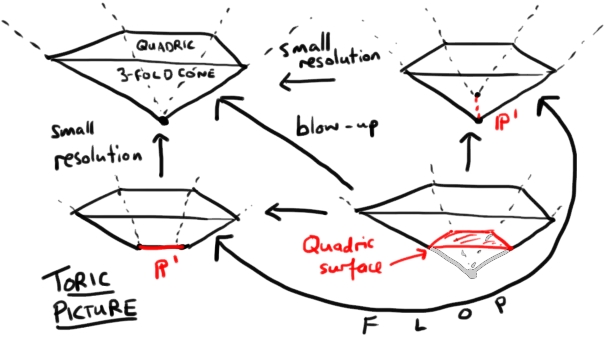 QUADRIC
3-FOLD CONE
small
resolution
ℙ¹
small
resolution
blow-up
ℙ¹
Quadric
surface
TORIC
PICTURE
F L O P